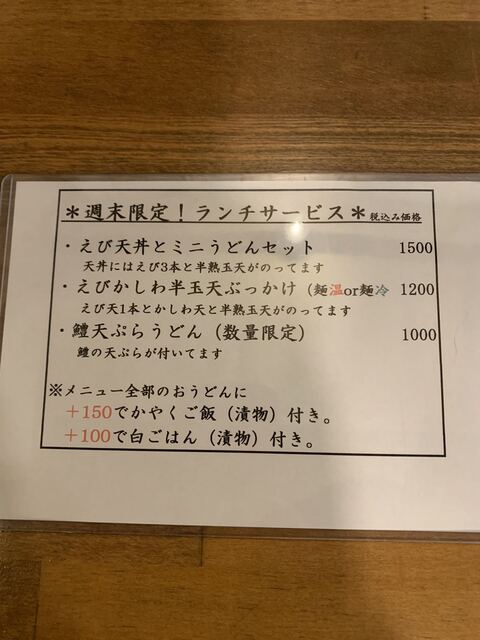 ＊週末限定！ランチサービス＊税込み価格
・えび天丼とミニうどんセット 1500
天丼にはえび3本と半熟玉天がのってます
・えびかしわ半玉天ぶっかけ（麺温or麺冷 1200
えび天1本とかしわ天と半熟玉天がのってます
・鱧天ぷらうどん（数量限定） 1000
鱧の天ぷらが付いてます
※メニュー全部のおうどんに
＋150でかやくご飯（漬物）付き。
＋100で白ごはん（漬物）付き。